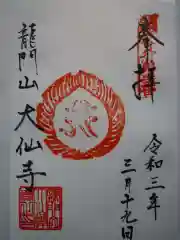 奉拝
令和三年
三月十九日
龍門山大仙寺